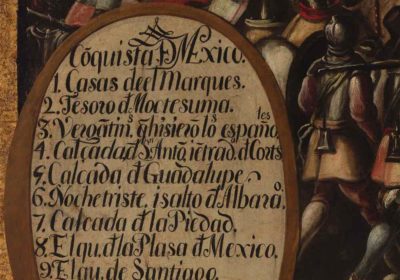 Cõquista đ Mexico.
1. Casas deel Marques.
2. Tesoro đ Moctesuma.
3. Vergãtin.s q̃ hisierõ ls españo.les
4. Calçada đ Sn Antõ iẽtrad. đ Corts
5. Calcada đ Guadalupe
6. Nochetriste, isalto đ Albarã.o
7. Calcada đ la Piedad.
8. El qu. đ la Plasa đ Mexico.
9. El qu. de Santiago.